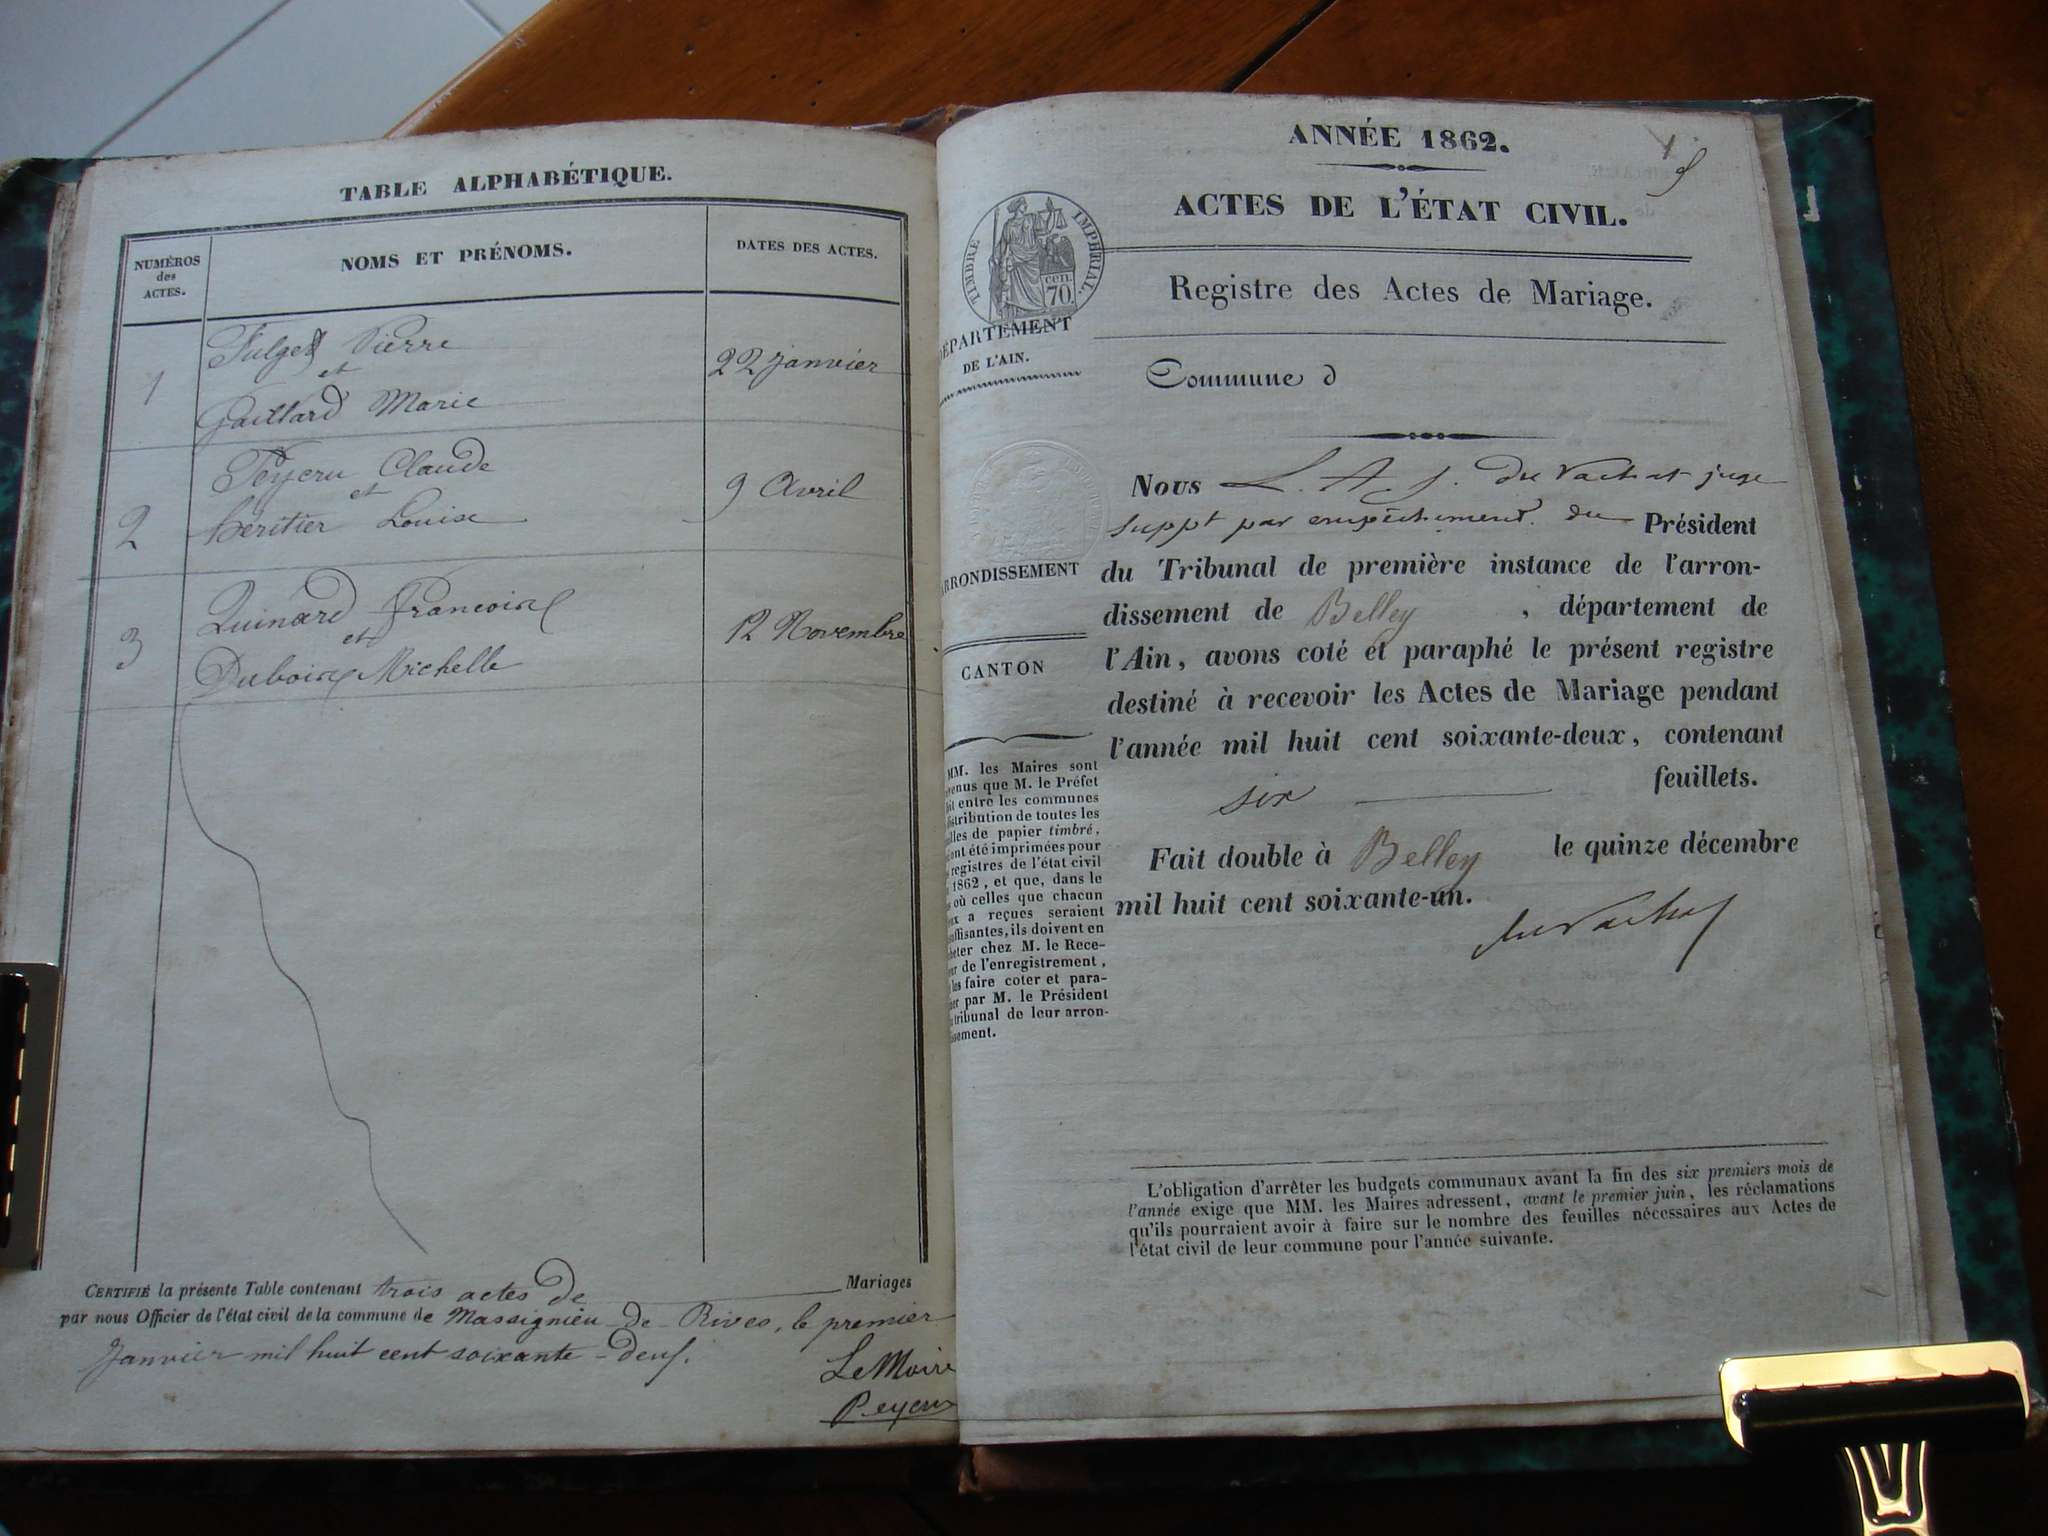 TABLE ALPHABÉTIQUE.
NUMÉROS
des
ACTES.
NOMS ET PRÉNOMS.
DATES DES ACTES.
1
Pierre
et
Gaillard Marie
22 janvier
2
Peyeru Claude
et
héritier Louise
9 Avril
3
Quinard francoise
et
Duboix Michelle
12 Novembre
CERTIFIÉ la présente Table contenant trois actes de Mariages
par nous Officier de l'état civil de la commune de Massignieu-de-Rives, le premier
Janvier mil huit cent soixante-deux.
Le Maire
Peyeru
ANNÉE 1862.
ACTES DE L'ÉTAT CIVIL.
TIMBRE IMPÉRIAL.
CEN.
70
Registre des Actes de Mariage.
DÉPARTEMENT
DE L'AIN.
Commune d
Nous L. A. J. du Vachat juge
suppt par empêchement du Président
du Tribunal de première instance de l'arron-
dissement de Belley , département de
l'Ain, avons coté et paraphé le présent registre
destiné à recevoir les Actes de Mariage pendant
l'année mil huit cent soixante-deux, contenant
six feuillets.
Fait double à Belley le quinze décembre
mil huit cent soixante-un.
du Vachat
ARRONDISSEMENT
CANTON
MM. les Maires sont
venus que M. le Préfet
ait entre les communes
istribution de toutes les
illes de papier timbré,
ont été imprimées pour
registres de l'état civil
1862, et que, dans le
s où celles que chacun
eux a reçues seraient
suffisantes, ils doivent en
heter chez M. le Rece-
eur de l'enregistrement,
les faire coter et para-
her par M. le Président
u tribunal de leur arron-
issement.
L'obligation d'arrêter les budgets communaux avant la fin des six premiers mois de
l'année exige que MM. les Maires adressent, avant le premier juin, les réclamations
qu'ils pourraient avoir à faire sur le nombre des feuilles nécessaires aux Actes de
l'état civil de leur commune pour l'année suivante.